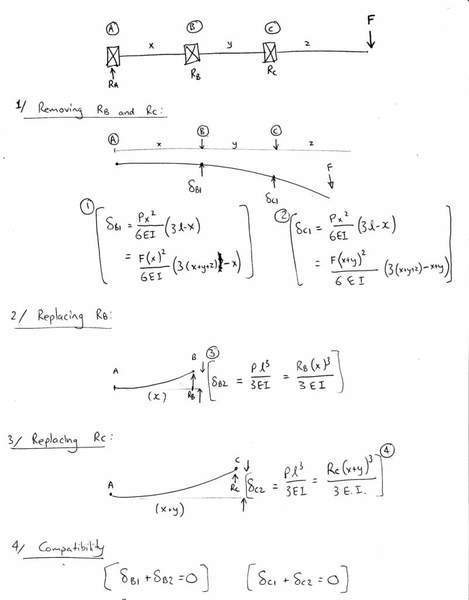 A B C F
x y z
RA RB RC
1/ Removing RB and RC:
A B C
x y z
F
δB1 δC1
① [ δB1 = Px²/6EI (3l-x)
= F(x)²/6EI (3(x+y+z)-x) ]
② [ δC1 = Px²/6EI (3l-x)
= F(x+y)²/6EI (3(x+y+z)-x+y) ]
2/ Replacing RB:
A B RB (x)
③ [ δB2 = Pl³/3EI = RB(x)³/3EI ]
3/ Replacing RC:
A C RC (x+y)
[ δC2 = Pl³/3EI = RC(x+y)³/3E.I. ] ④
4/ Compatibility
[ δB1 + δB2 = 0 ] [ δC1 + δC2 = 0 ]